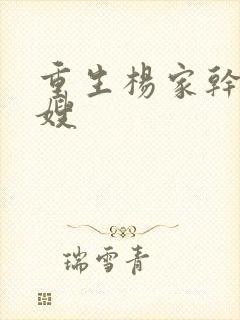 重生楊家幹
嫂
瑞雪青